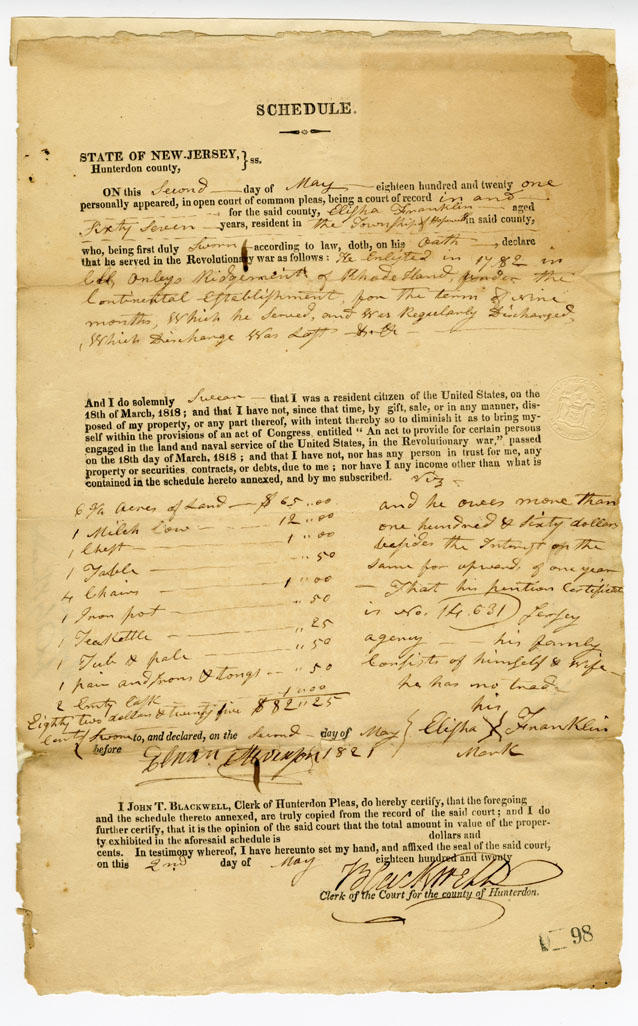 SCHEDULE.
STATE OF NEW-JERSEY, } ss.
Hunterdon county,
ON this Second day of May eighteen hundred and twenty one
personally appeared, in open court of common pleas, being a court of record in and
for the said county, Elisha Franklin aged
Sixty Seven years, resident in the Township of in said county,
who, being first duly Sworn according to law, doth, on his Oath declare
that he served in the Revolutionary war as follows: He Enlisted in 1782 in
Col Onleys Ridgement of Rhode Island, under the
Continental Establishment, for the term of Nine
months, Which he Served, and Was Regularly Discharged,
Which Discharge Was Lost
And I do solemnly Swear that I was a resident citizen of the United States, on the
18th of March, 1818; and that I have not, since that time, by gift, sale, or in any manner, dis-
posed of my property, or any part thereof, with intent thereby so to diminish it as to bring my-
self within the provisions of an act of Congress, entitled "An act to provide for certain persons
engaged in the land and naval service of the United States, in the Revolutionary war," passed
on the 18th day of March, 1818; and that I have not, nor has any person in trust for me, any
property or securities, contracts, or debts, due to me; nor have I any income other than what is
contained in the schedule hereto annexed, and by me subscribed. viz
6 Acres of Land $65 ,, 00
1 Milch Cow 12 ,, 00
1 Chest 1 ,, 00
1 Table ,, 50
4 Chairs 1 ,, 00
1 Iron pot ,, 50
1 Teakettle ,, 25
1 Tub & pale ,, 50
1 pair andirons & tongs ,, 50
2 Emty Cask 1 ,, 00
Eighty two dollars & twenty five $82 ,, 25
Cents
and he owes more than
one hundred & Sixty dollars
besides the Interest on the
same for upward of one year
That his pention Certificate
is No. 14.631 Jersey
agency his family
Consists of himself & Wife
he has no trade
Sworn to, and declared, on the Second day of May
before 1821
his
Elisha X Franklin
Mark
I JOHN T. BLACKWELL, Clerk of Hunterdon Pleas, do hereby certify, that the foregoing
and the schedule thereto annexed, are truly copied from the record of the said court; and I do
further certify, that it is the opinion of the said court that the total amount in value of the proper-
ty exhibited in the aforesaid schedule is dollars and
cents. In testimony whereof, I have hereunto set my hand, and affixed the seal of the said court,
on this 2nd day of May eighteen hundred and twenty
Blackwell
Clerk of the Court for the county of Hunterdon.
98